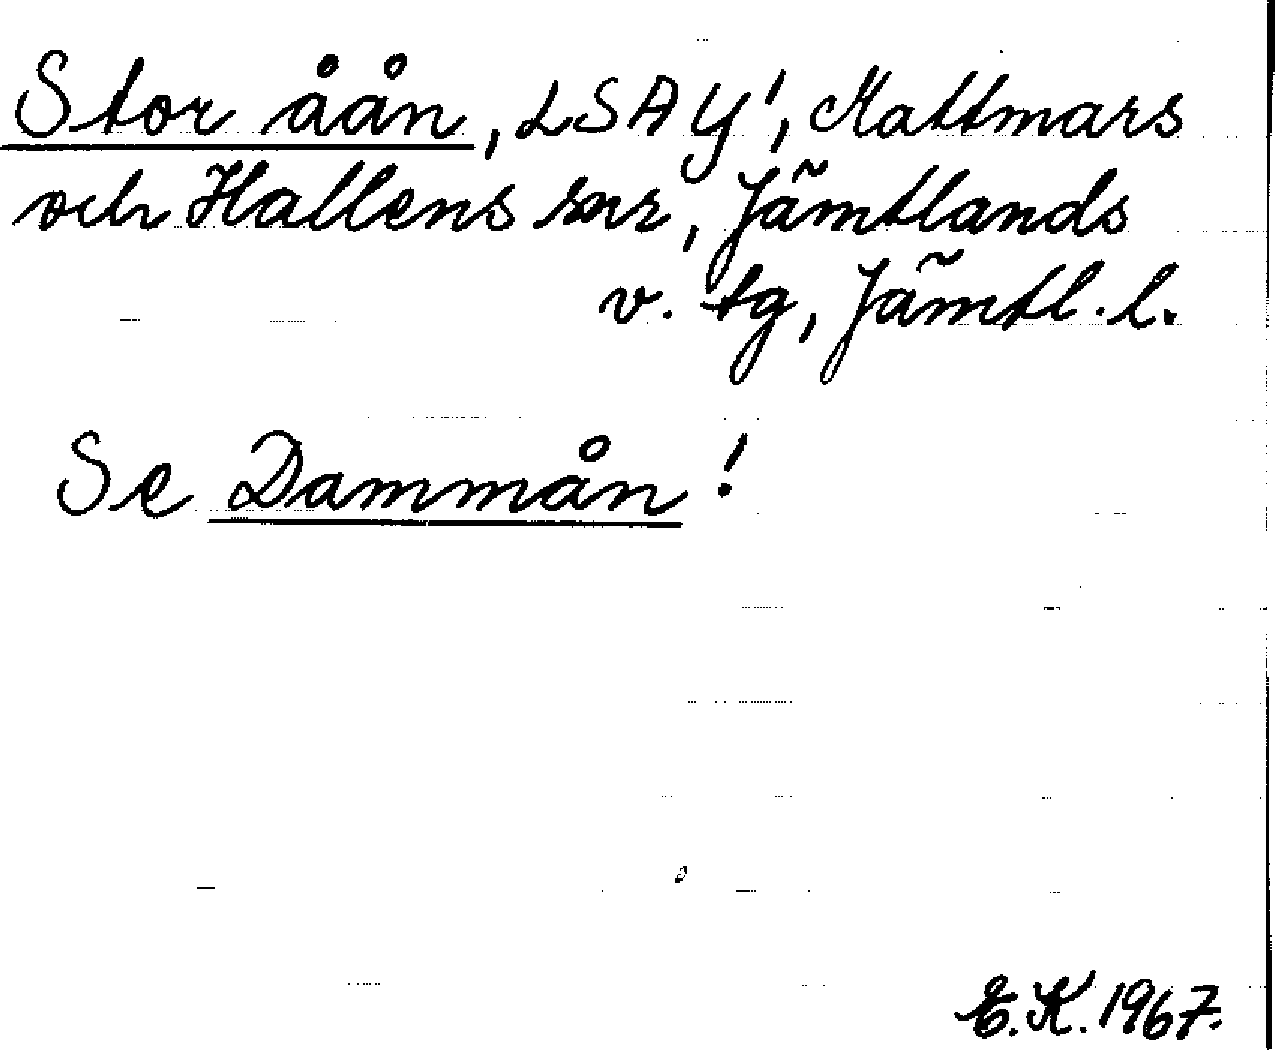 Stor åån, LSA Y!, Mattmars
och Hallens snr, Jämtlands
v. tg, Jämtl. l.
Se Dammån!
E.K. 1967.